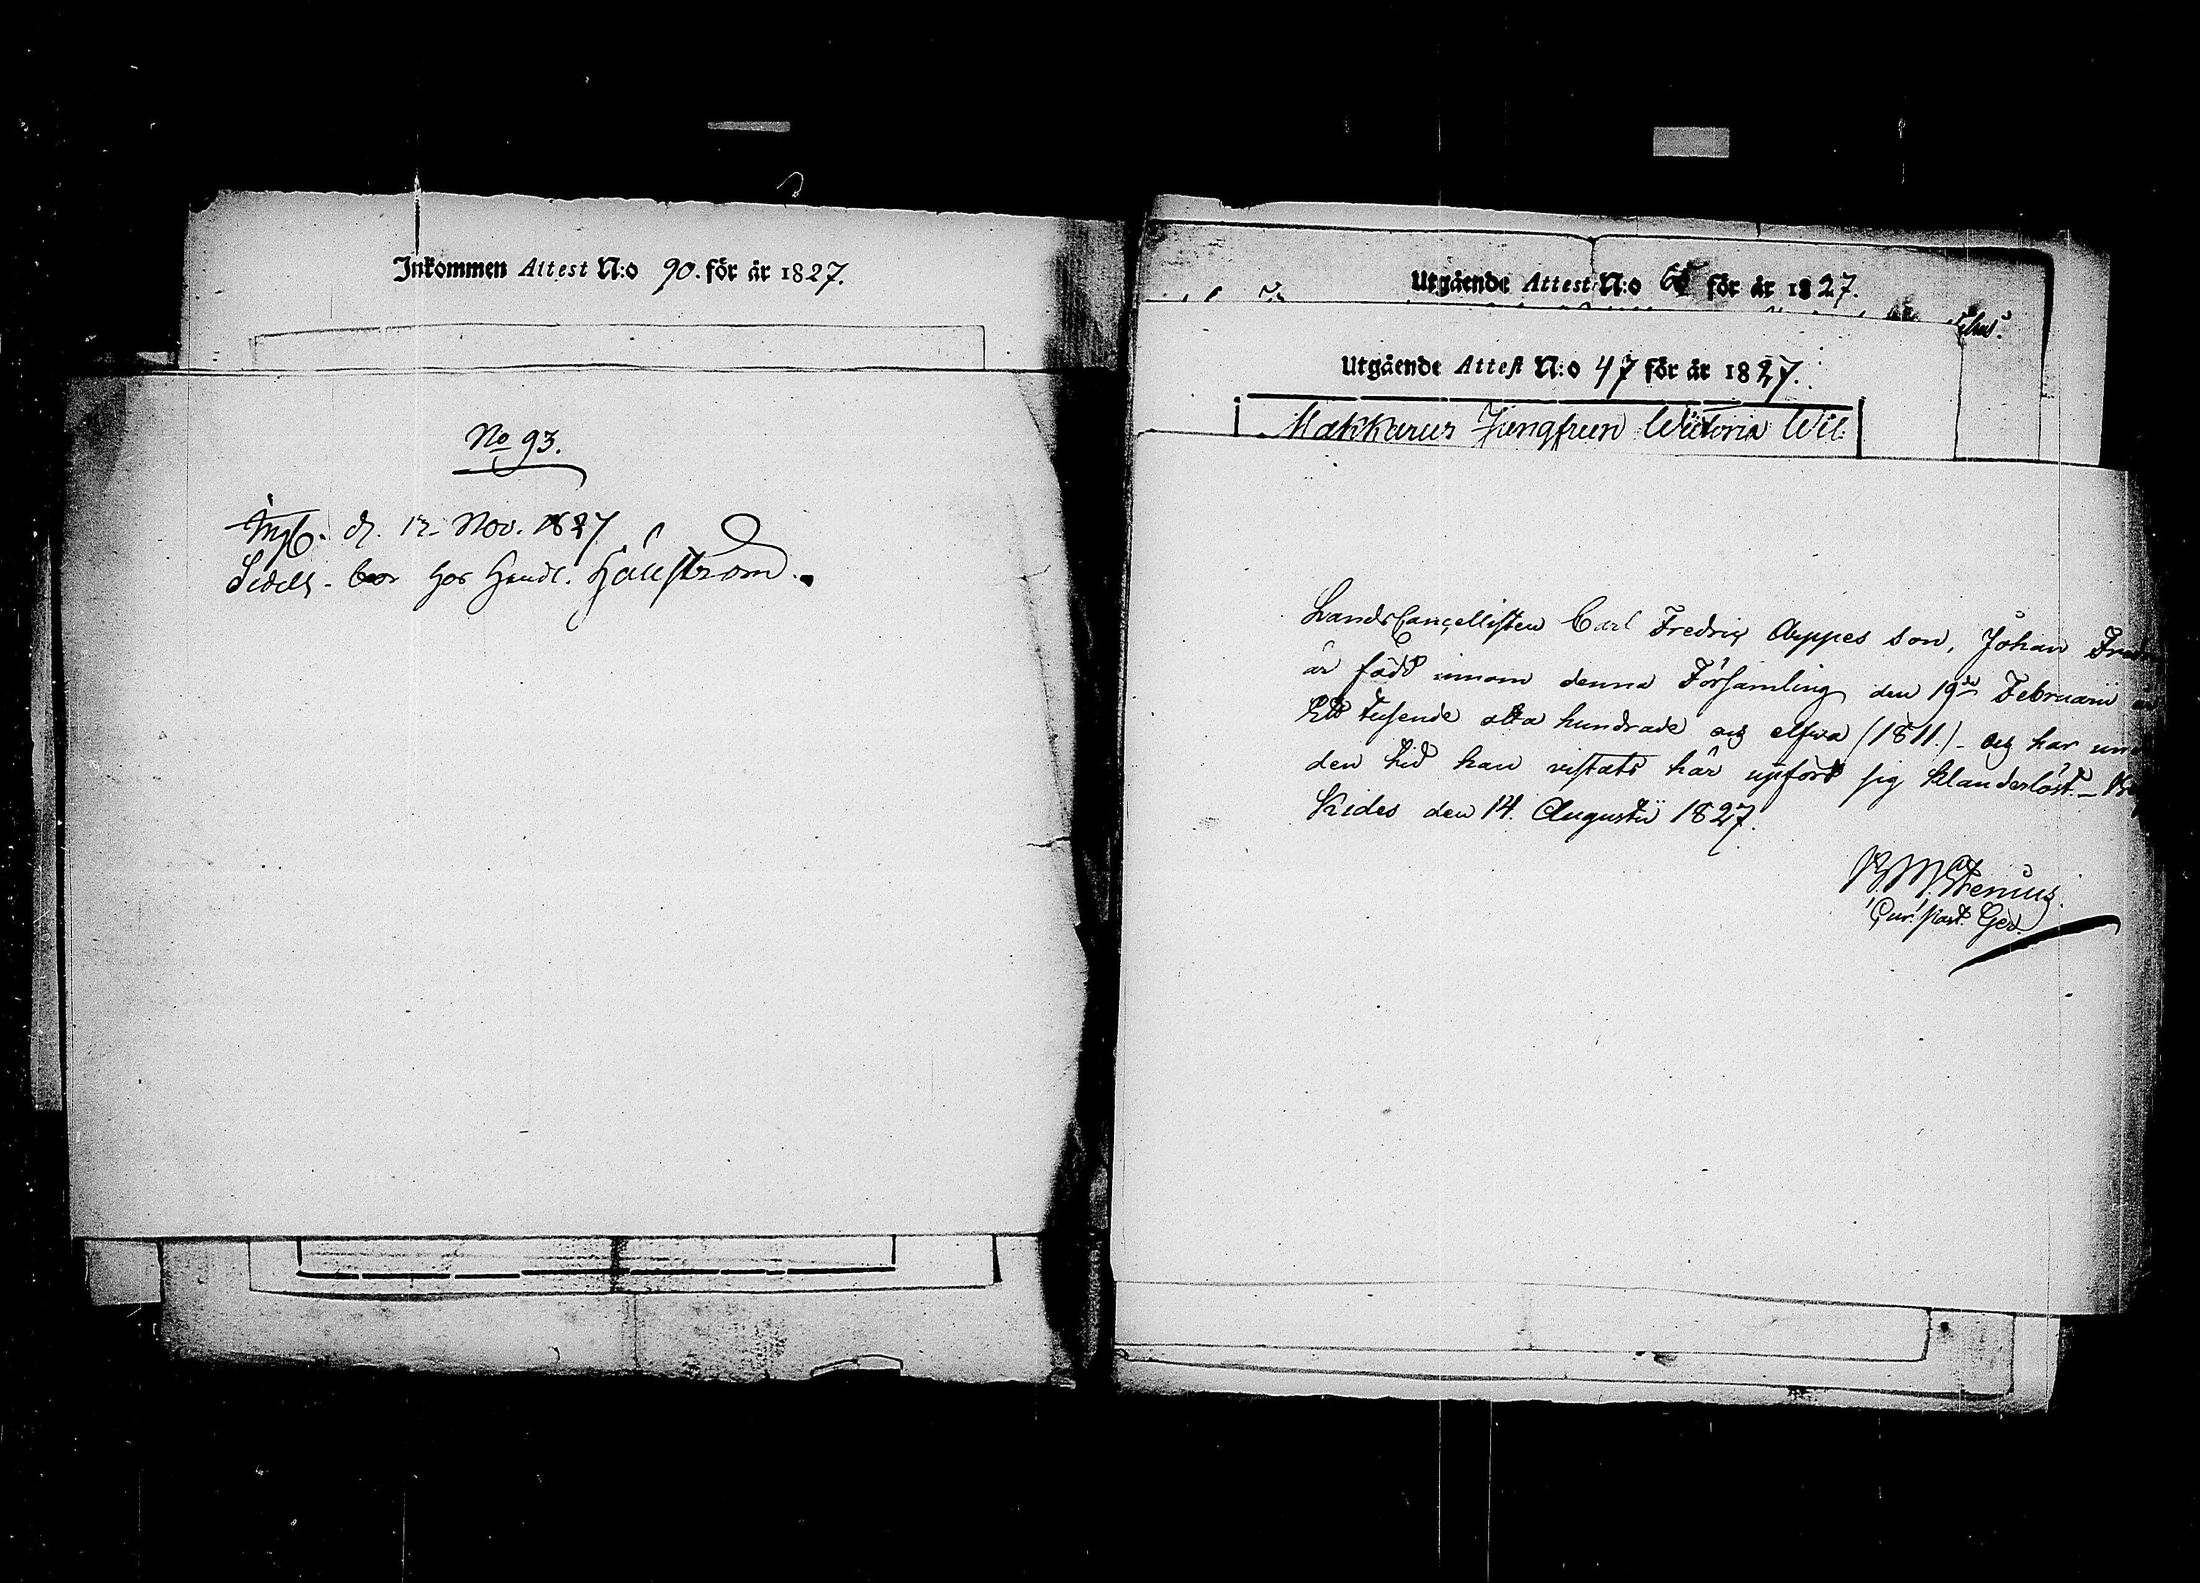 Inkommen Attest N:o 90. för år 1827.
No 93.
d. 12. Nov. 1827
boor hos Handl. Hällström.
Utgående Attest N:o för år 1827.
Utgående Attest N:o 47 för år 1827.
Makkurus Jungfrun Wictoria Wil
LandsCancellisten Carl Fredric Aeppes son, Johan Fred
är född innom denna Församling den 19de Februarii
Ett tusende otta hundrade och elfwa (1811.) - och har un
den tid han vistats här upfört sig klanderlöst. -
Kides den 14 Augusti 1827.
Stenius.
Cur. past. Ged.